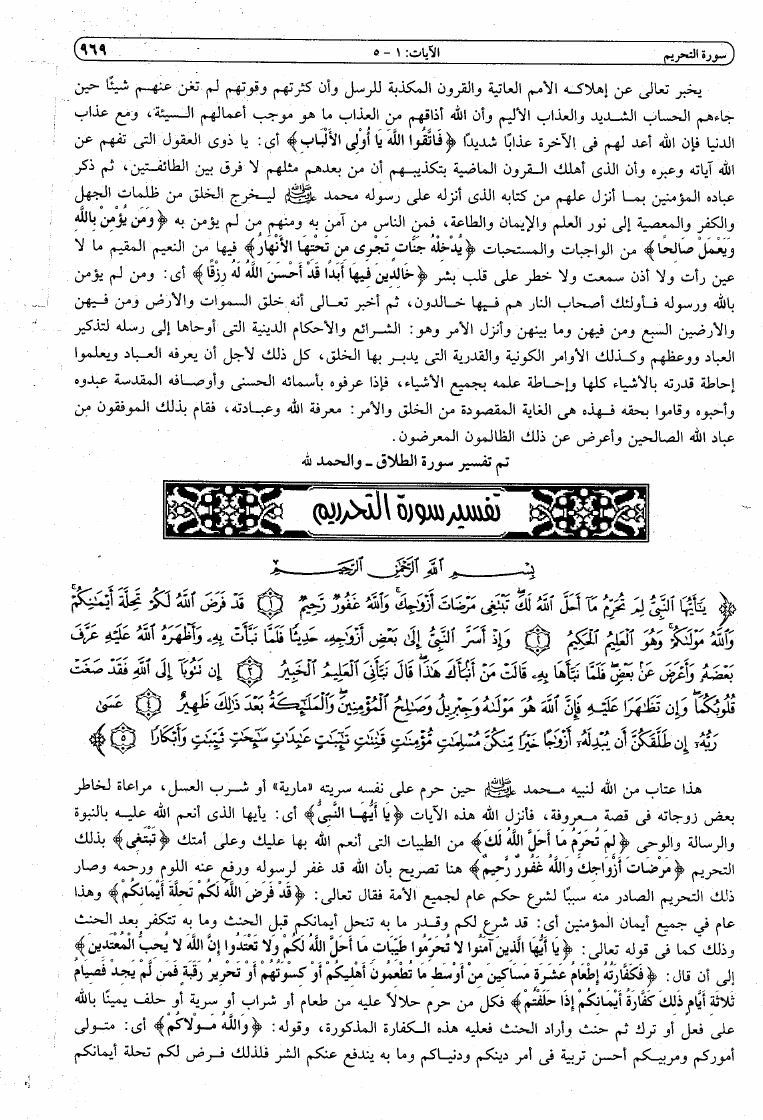 سورة التحريم الآيات: ١ - ٥ ٩٦٩
يخبر تعالى عن إهلاكه الأمم العاتية والقرون المكذبة للرسل وأن كثرتهم وقوتهم لم تغن عنهم شيئًا حين
جاءهم الحساب الشديد والعذاب الأليم وأن الله أذاقهم من العذاب ما هو موجب أعمالهم السيئة، ومع عذاب
الدنيا فإن الله أعد لهم فى الآخرة عذابًا شديدًا ﴿فَاتَّقُوا اللَّهَ يَا أُوْلِى الأَلْبَابِ﴾ أى: يا ذوى العقول التى تفهم عن
الله آياته وعبره وأن الذى أهلك القرون الماضية بتكذيبهم أن من بعدهم مثلهم لا فرق بين الطائفتين، ثم ذكر
عباده المؤمنين بما أنزل علهم من كتابه الذى أنزله على رسوله محمد ﷺ ليخرج الخلق من ظلمات الجهل
والكفر والمعصية إلى نور العلم والإيمان والطاعة، فمن الناس من آمن به ومنهم من لم يؤمن به ﴿وَمَن يُؤْمِنْ بِاللَّهِ
وَيَعْمَلْ صَالِحًا﴾ من الواجبات والمستحبات ﴿يُدْخِلْهُ جَنَّاتٍ تَجْرِى مِن تَحْتِهَا الأَنْهَارُ﴾ فيها من النعيم المقيم ما لا
عين رأت ولا أذن سمعت ولا خطر على قلب بشر ﴿خَالِدِينَ فِيهَا أَبَدًا قَدْ أَحْسَنَ اللَّهُ لَهُ رِزْقًا﴾ أى: ومن لم يؤمن
بالله ورسوله فأولئك أصحاب النار هم فيها خالدون، ثم أخبر تعالى أنه خلق السموات والأرض ومن فيهن
والأرضين السبع ومن فيهن وما بينهن وأنزل الأمر وهو: الشرائع والأحكام الدينية التى أوحاها إلى رسله لتذكير
العباد ووعظهم وكذلك الأوامر الكونية والقدرية التى يدبر بها الخلق، كل ذلك لأجل أن يعرفه العباد ويعلموا
إحاطة قدرته بالأشياء كلها وإحاطة علمه بجميع الأشياء، فإذا عرفوه بأسمائه الحسنى وأوصافه المقدسة عبدوه
وأحبوه وقاموا بحقه فهذه هى الغاية المقصودة من الخلق والأمر: معرفة الله وعبادته، فقام بذلك الموفقون من
عباد الله الصالحين وأعرض عن ذلك الظالمون المعرضون.
تم تفسير سورة الطلاق - والحمد لله
تفسير سورة التحريم
بِسْمِ اللَّهِ الرَّحْمَٰنِ الرَّحِيمِ
﴿ يَٰٓأَيُّهَا ٱلنَّبِىُّ لِمَ تُحَرِّمُ مَآ أَحَلَّ ٱللَّهُ لَكَ تَبْتَغِى مَرْضَاتَ أَزْوَٰجِكَ وَٱللَّهُ غَفُورٌ رَّحِيمٌ ١ قَدْ فَرَضَ ٱللَّهُ لَكُمْ تَحِلَّةَ أَيْمَٰنِكُمْ
وَٱللَّهُ مَوْلَىٰكُمْ وَهُوَ ٱلْعَلِيمُ ٱلْحَكِيمُ ٢ وَإِذْ أَسَرَّ ٱلنَّبِىُّ إِلَىٰ بَعْضِ أَزْوَٰجِهِۦ حَدِيثًا فَلَمَّا نَبَّأَتْ بِهِۦ وَأَظْهَرَهُ ٱللَّهُ عَلَيْهِ عَرَّفَ
بَعْضَهُۥ وَأَعْرَضَ عَنۢ بَعْضٍ فَلَمَّا نَبَّأَهَا بِهِۦ قَالَتْ مَنْ أَنۢبَأَكَ هَٰذَا قَالَ نَبَّأَنِىَ ٱلْعَلِيمُ ٱلْخَبِيرُ ٣ إِن تَتُوبَآ إِلَى ٱللَّهِ فَقَدْ صَغَتْ
قُلُوبُكُمَا وَإِن تَظَٰهَرَا عَلَيْهِ فَإِنَّ ٱللَّهَ هُوَ مَوْلَىٰهُ وَجِبْرِيلُ وَصَٰلِحُ ٱلْمُؤْمِنِينَ وَٱلْمَلَٰٓئِكَةُ بَعْدَ ذَٰلِكَ ظَهِيرٌ ٤ عَسَىٰ
رَبُّهُۥٓ إِن طَلَّقَكُنَّ أَن يُبْدِلَهُۥٓ أَزْوَٰجًا خَيْرًا مِّنكُنَّ مُسْلِمَٰتٍ مُّؤْمِنَٰتٍ قَٰنِتَٰتٍ تَٰٓئِبَٰتٍ عَٰبِدَٰتٍ سَٰٓئِحَٰتٍ ثَيِّبَٰتٍ وَأَبْكَارًا ٥ ﴾
هذا عتاب من الله لنبيه محمد ﷺ حين حرم على نفسه سريته «مارية» أو شرب العسل، مراعاة لخاطر
بعض زوجاته فى قصة معروفة، فأنزل الله هذه الآيات ﴿يَا أَيُّهَا النَّبِىُّ﴾ أى: يأيها الذى أنعم الله عليه بالنبوة
والرسالة والوحى ﴿لِمَ تُحَرِّمُ مَا أَحَلَّ اللَّهُ لَكَ﴾ من الطيبات التى أنعم الله بها عليك وعلى أمتك ﴿تَبْتَغِى﴾ بذلك
التحريم ﴿مَرْضَاتَ أَزْوَاجِكَ وَاللَّهُ غَفُورٌ رَّحِيمٌ﴾ هنا تصريح بأن الله قد غفر لرسوله ورفع عنه اللوم ورحمه وصار
ذلك التحريم الصادر منه سببًا لشرع حكم عام لجميع الأمة فقال تعالى: ﴿قَدْ فَرَضَ اللَّهُ لَكُمْ تَحِلَّةَ أَيْمَانِكُمْ﴾ وهذا
عام في جميع أيمان المؤمنين أى: قد شرع لكم وقدر ما به تنحل أيمانكم قبل الحنث وما به تتكفر بعد الحنث
وذلك كما فى قوله تعالى: ﴿يَا أَيُّهَا الَّذِينَ آمَنُوا لا تُحَرِّمُوا طَيِّبَاتِ مَا أَحَلَّ اللَّهُ لَكُمْ وَلا تَعْتَدُوا إِنَّ اللَّهَ لا يُحِبُّ الْمُعْتَدِينَ﴾
إلى أن قال: ﴿فَكَفَّارَتُهُ إِطْعَامُ عَشَرَةِ مَسَاكِينَ مِنْ أَوْسَطِ مَا تُطْعِمُونَ أَهْلِيكُمْ أَوْ كِسْوَتُهُمْ أَوْ تَحْرِيرُ رَقَبَةٍ فَمَن لَّمْ يَجِدْ فَصِيَامُ
ثَلاثَةِ أَيَّامٍ ذَلِكَ كَفَّارَةُ أَيْمَانِكُمْ إِذَا حَلَفْتُمْ﴾ فكل من حرم حلالاً عليه من طعام أو شراب أو سرية أو حلف يمينًا بالله
على فعل أو ترك ثم حنث وأراد الحنث فعليه هذه الكفارة المذكورة، وقوله: ﴿وَاللَّهُ مَوْلاكُمْ﴾ أى: متولى
أموركم ومربيكم أحسن تربية فى أمر دينكم ودنياكم وما به يندفع عنكم الشر فلذلك فرض لكم تحلة أيمانكم